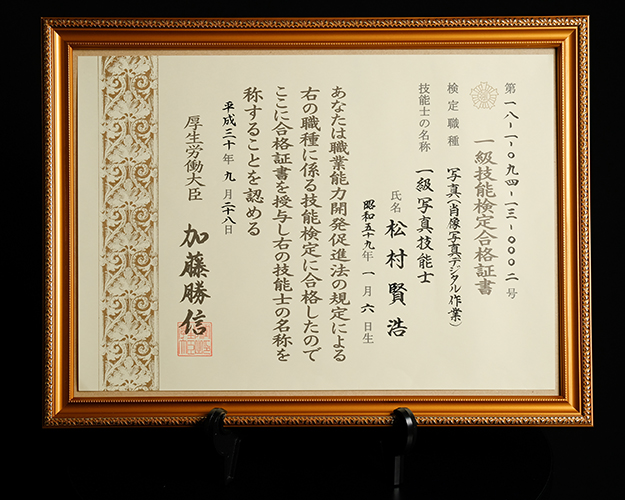 第一八-一-〇九四-一三-〇〇〇二号
一級技能検定合格証書
検定職種　写真(肖像写真デジタル作業)
技能士の名称　一級写真技能士
氏名　松村賢浩
昭和五十九年一月六日生
あなたは職業能力開発促進法の規定による
右の職種に係る技能検定に合格したので
ここに合格証書を授与し右の技能士の名称を
称することを認める
平成三十年九月二十八日
厚生労働大臣　加藤勝信